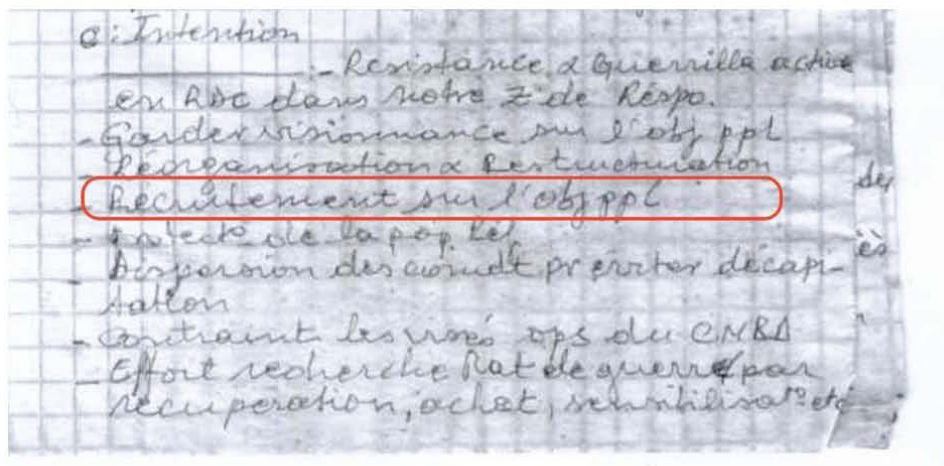 c: Intention
- Resistance & Guerrilla active
en RDC dans notre Z de Respo.
- Garder visionnance sur l'obj ppl
- Réorganisation & Restructuration
- Recrutement sur l'obj ppl
- de la pop
- Dispersion des comdt pr éviter décapi-
tation
- Contraint les visés ops du CMBD
- Effort recherche Mat de guerre par
récuperation, achat, sensibilisa° etc
de
ès